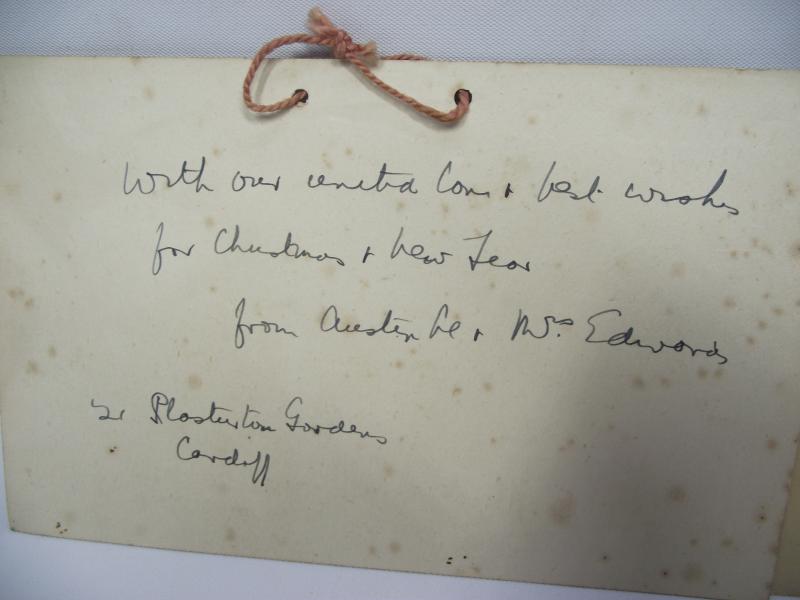 With our united love + best wishes
for Christmas + New Year
from Austin + Mrs Edwards
Plasturton Gardens
Cardiff